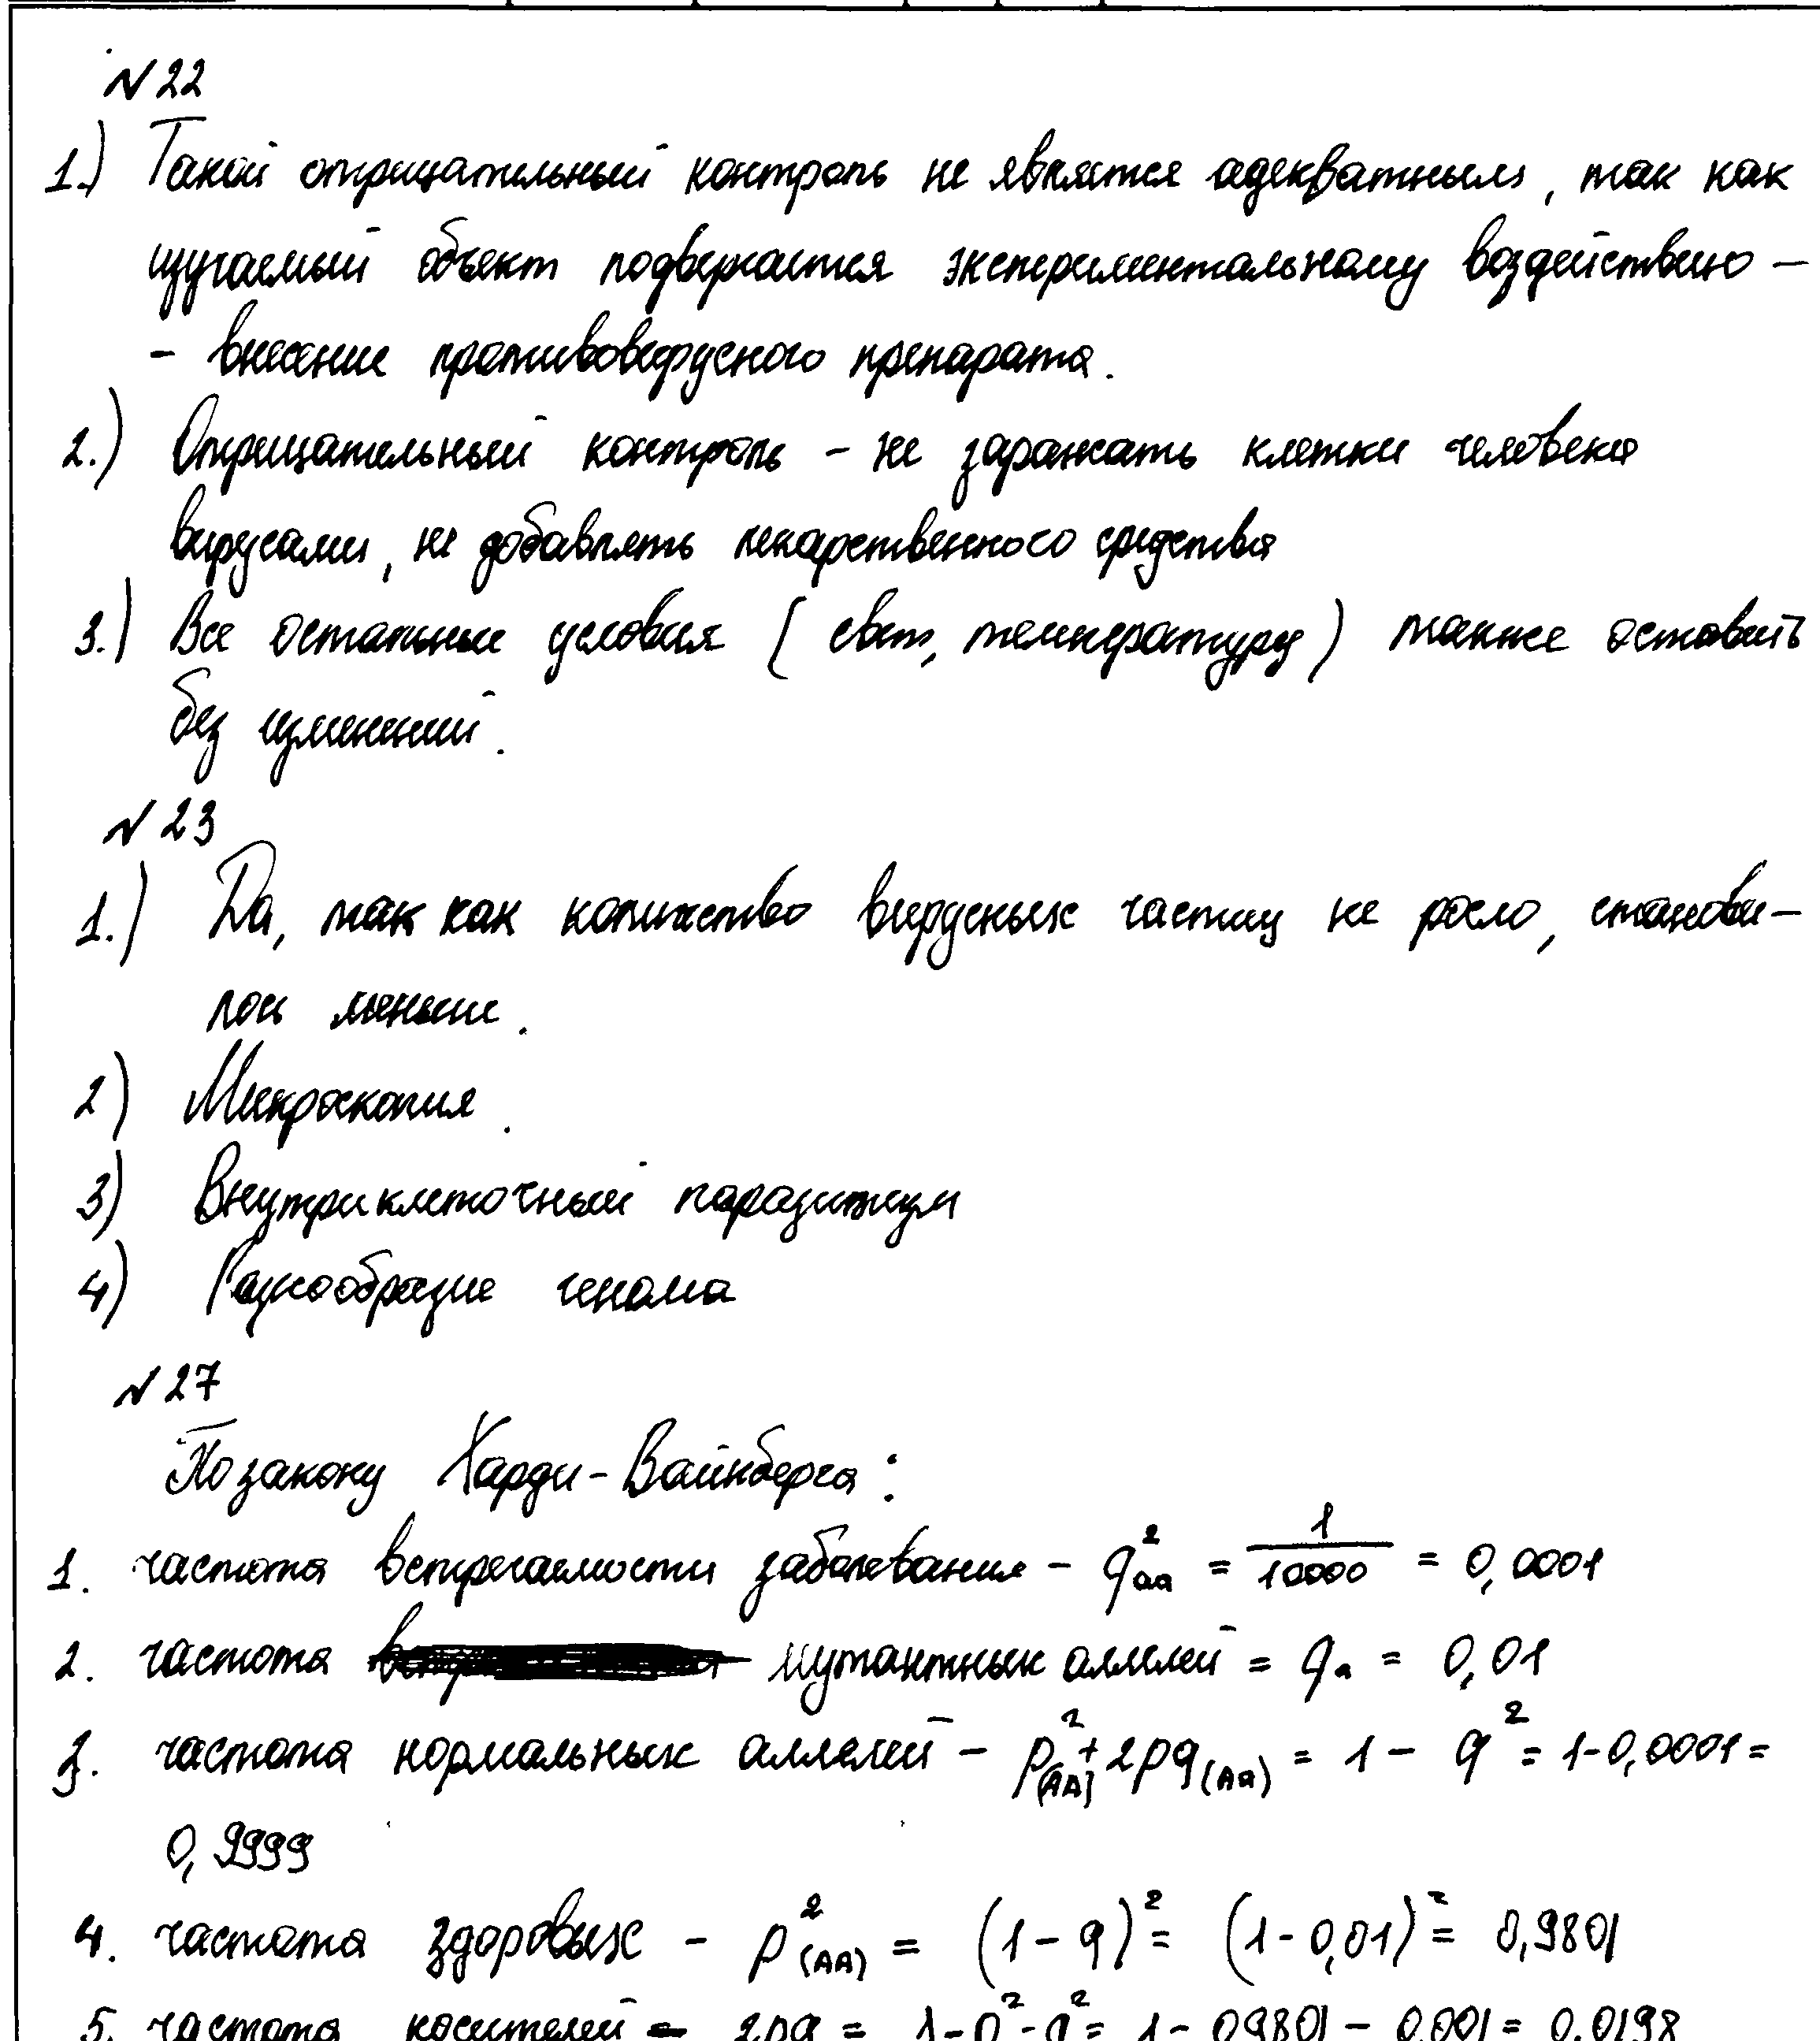 №22
1.) Такой отрицательный контроль не является адекватным, так как
изучаемый объект подвергается экспериментальному воздействию –
– внесение противовирусного препарата.
2.) Отрицательный контроль – не заражать клетки человека
вирусами, не добавлять лекарственного средства
3.) Все остальные условия (свет, температуру) также оставить
без изменений.
№23
1.) Да, так как количество вирусных частиц не росло, станови–
лось меньше.
2) Микроскопия.
3) Внутриклеточный паразитизм
4) Разнообразие генома
№27
По закону Харди–Вайнберга:
1. частота встречаемости заболевания – q²aa = 1/10000 = 0,0001
2. частота мутантных аллелей = qa = 0,01
3. частота нормальных аллелей – p²(AA) + 2pq(Aa) = 1 – q² = 1-0,0001 =
0,9999
4. частота здоровых – p²(AA) = (1 – q)² = (1 - 0,01)² = 0,9801
5. частота носителей – 2pq = 1 - p² - q² = 1 - 0,9801 – 0,001 = 0,0198